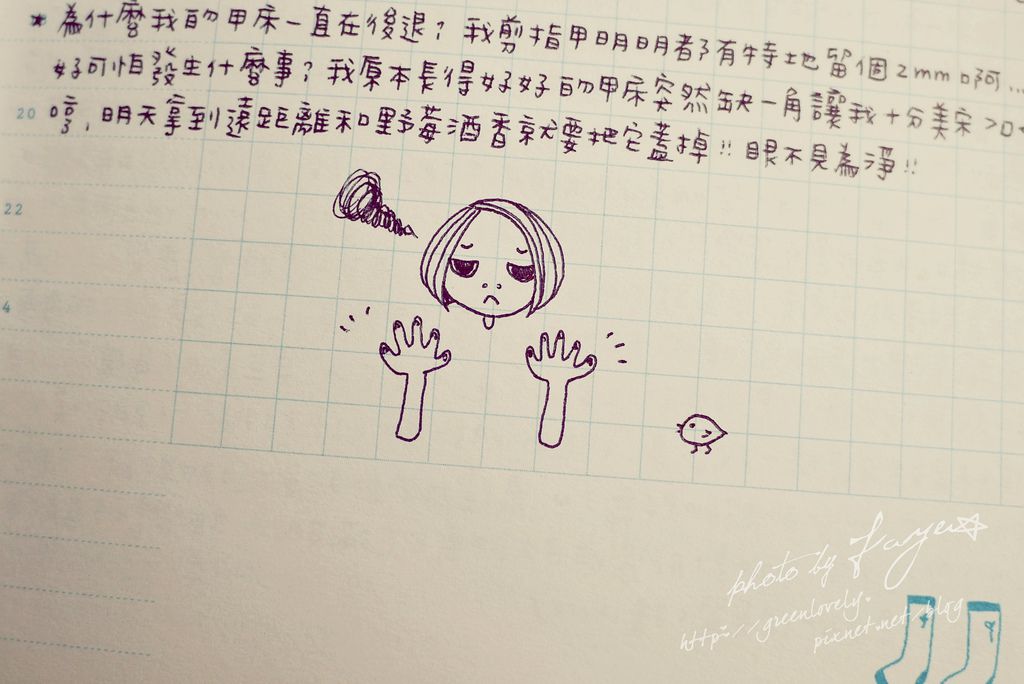 * 為什麼我的甲床一直在後退？我剪指甲明明都有特地留個2mm啊...
好可怕發生什麼事？我原本長得好好的甲床突然缺一角讓我十分美宋 >口<
20 哼，明天拿到遠距離和野莓酒香就要把它蓋掉!! 眼不見為淨!!
22
4
photo by Faye☆
http://greenlovely.
pixnet.net/blog